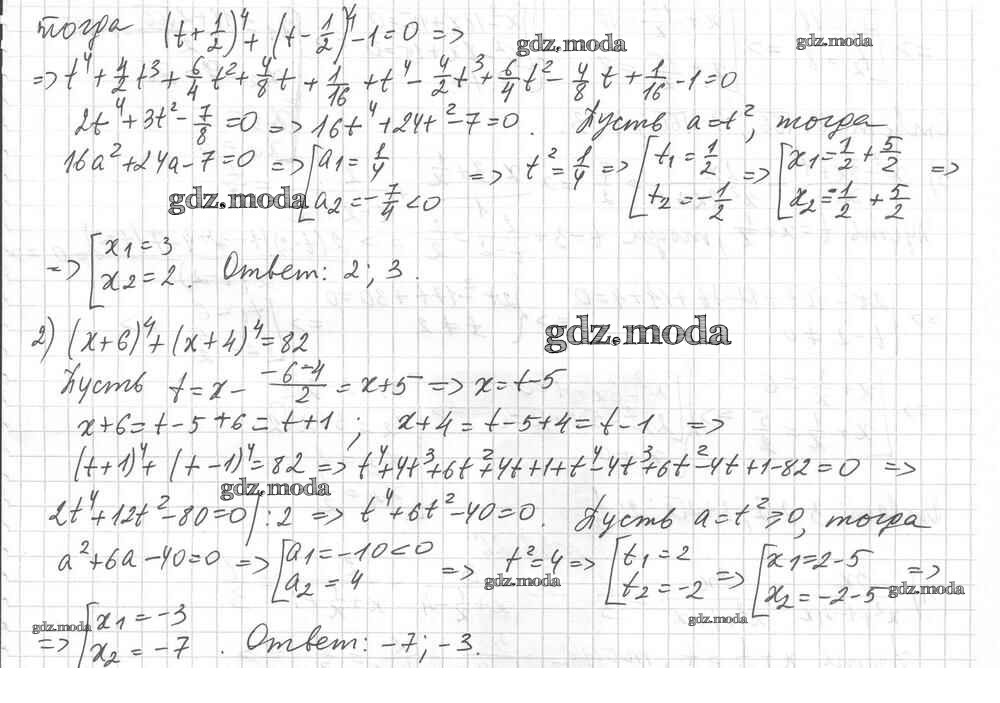 тогда (t+1/2)^4+(t-1/2)^4-1=0 =>
gdz.moda
gdz.moda
=> t^4+4/2t^3+6/4t^2+4/8t+1/16+t^4-4/2t^3+6/4t^2-4/8t+1/16-1=0
2t^4+3t^2-7/8=0 => 16t^4+24t^2-7=0. Пусть a=t^2, тогда
16a^2+24a-7=0 => [a1=1/4 a2=-7/4<0 => t^2=1/4 => [t1=1/2 t2=-1/2 => [x1=1/2+5/2 x2=-1/2+5/2 =>
gdz.moda
=> [x1=3 x2=2. Ответ: 2; 3.
gdz.moda
2) (x+6)^4+(x+4)^4=82
Пусть t=x- -6-4/2 = x+5 => x=t-5
x+6=t-5+6=t+1; x+4=t-5+4=t-1 =>
(t+1)^4+(t-1)^4=82 => t^4+4t^3+6t^2+4t+1+t^4-4t^3+6t^2-4t+1-82=0 =>
gdz.moda
2t^4+12t^2-80=0|:2 => t^4+6t^2-40=0. Пусть a=t^2≥0, тогда
a^2+6a-40=0 => [a1=-10<0 a2=4 => t^2=4 => [t1=2 t2=-2 => [x1=2-5 x2=-2-5 =>
gdz.moda
gdz.moda
gdz.moda
gdz.moda
=> [x1=-3 x2=-7. Ответ: -7; -3.